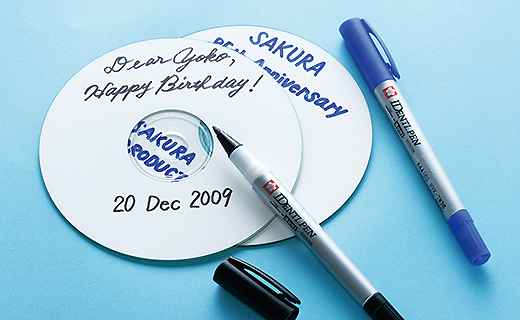 Dear Yoko,
Happy Birthday!
20 Dec 2009
SAKURA
Anniversary
SAKURA
PRODUCT
IDENTI.PEN
IDENTI.PEN